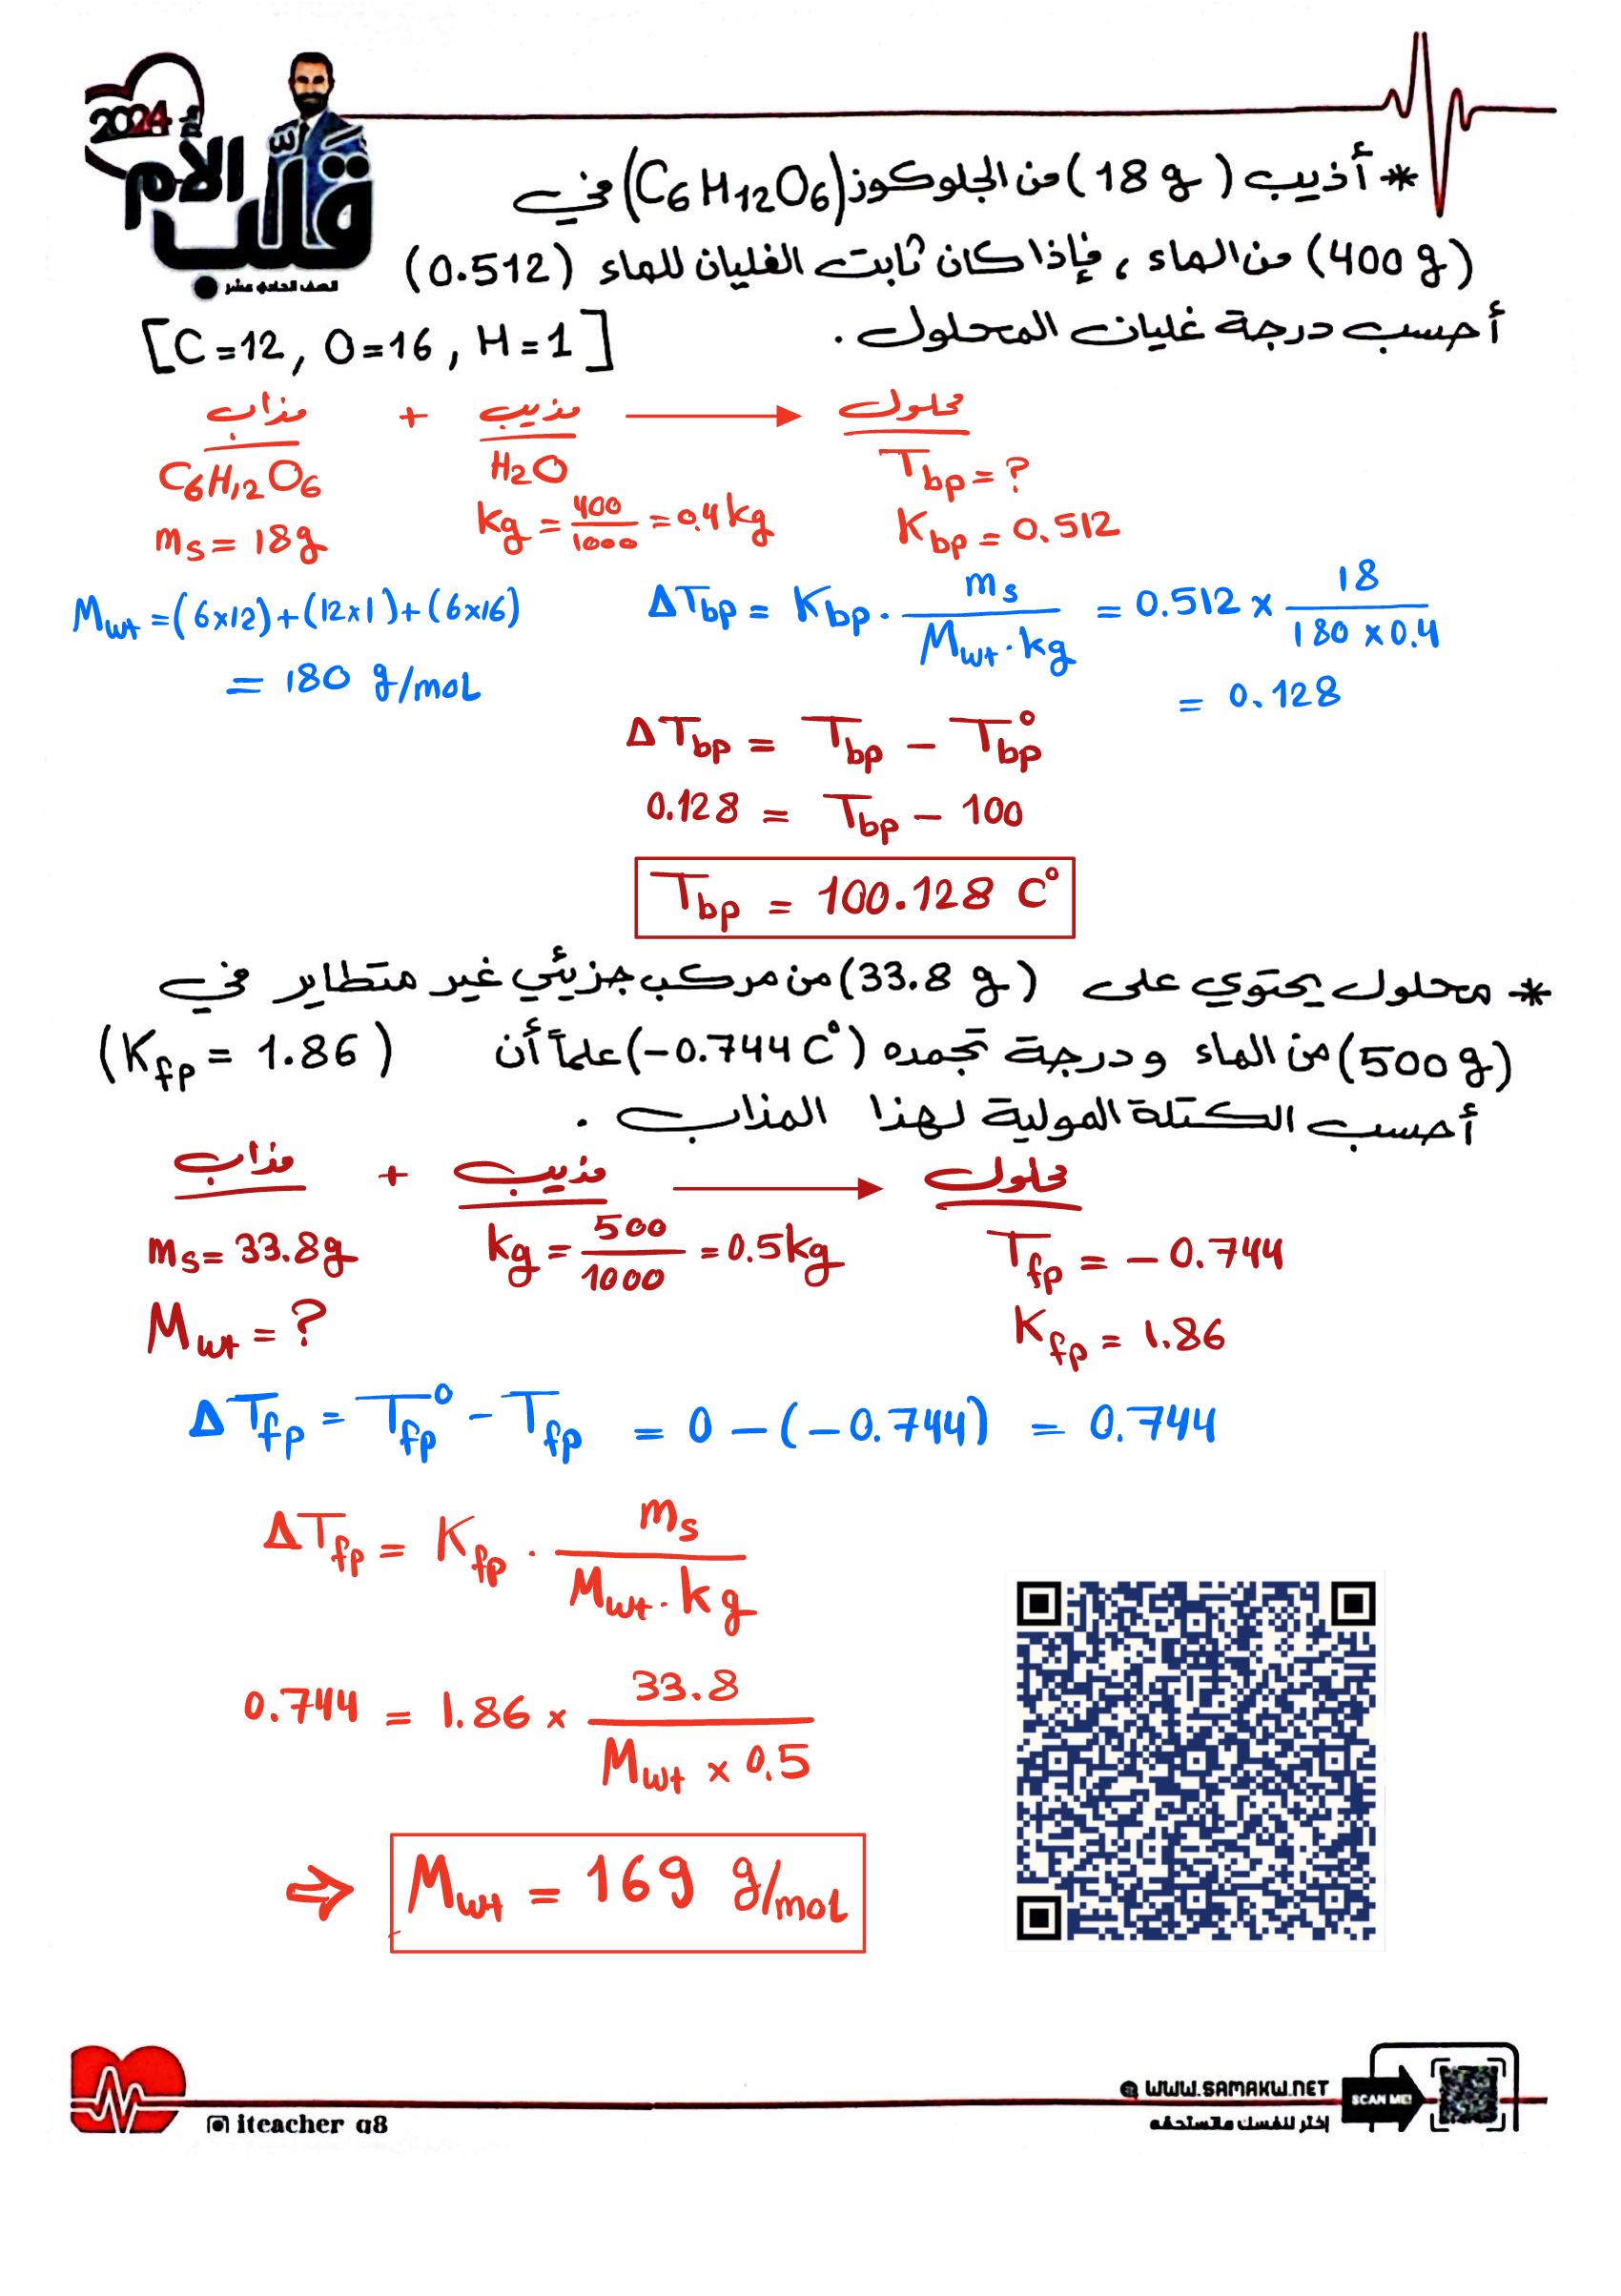 2024
قلب الأم
الصف الحادي عشر
* أذيب (18 g) من الجلوكوز (C₆H₁₂O₆) في
(400 g) من الماء ، فإذا كان ثابت الغليان للماء (0.512)
أحسب درجة غليان المحلول .
[C=12, O=16, H=1]
مذاب + مذيب → محلول
C₆H₁₂O₆ H₂O T_bp = ?
m_s = 18g kg = 400/1000 = 0.4 kg K_bp = 0.512
M_wt = (6x12)+(12x1)+(6x16) ΔT_bp = K_bp . m_s / (M_wt . kg) = 0.512 x 18 / (180 x 0.4)
= 180 g/mol = 0.128
ΔT_bp = T_bp − T°_bp
0.128 = T_bp − 100
T_bp = 100.128 C°
* محلول يحتوي على (33.8 g) من مركب جزيئي غير متطاير في
(500 g) من الماء ودرجة تجمده (−0.744 C°) علماً أن (K_fp = 1.86)
أحسب الكتلة المولية لهذا المذاب .
مذاب + مذيب → محلول
m_s = 33.8g kg = 500/1000 = 0.5 kg T_fp = −0.744
M_wt = ? K_fp = 1.86
ΔT_fp = T°_fp − T_fp = 0 − (−0.744) = 0.744
ΔT_fp = K_fp . m_s / (M_wt . kg)
0.744 = 1.86 x 33.8 / (M_wt x 0.5)
⇒ M_wt = 169 g/mol
WWW.SAMAKW.NET
SCAN ME!
إختر لنفسك ماتستحقه
iteacher_q8